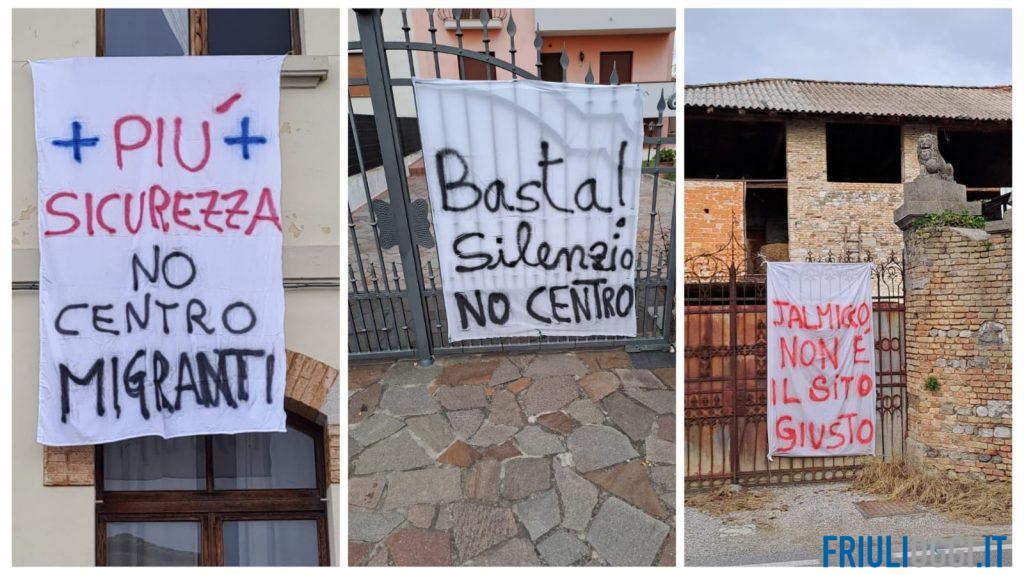 + PIÚ +
SICUREZZA
NO
CENTRO
MIGRANTI
Basta!
Silenzio
NO CENTRO
JALMICCO
NON È
IL SITO
GIUSTO
FRIULIOGGI.IT